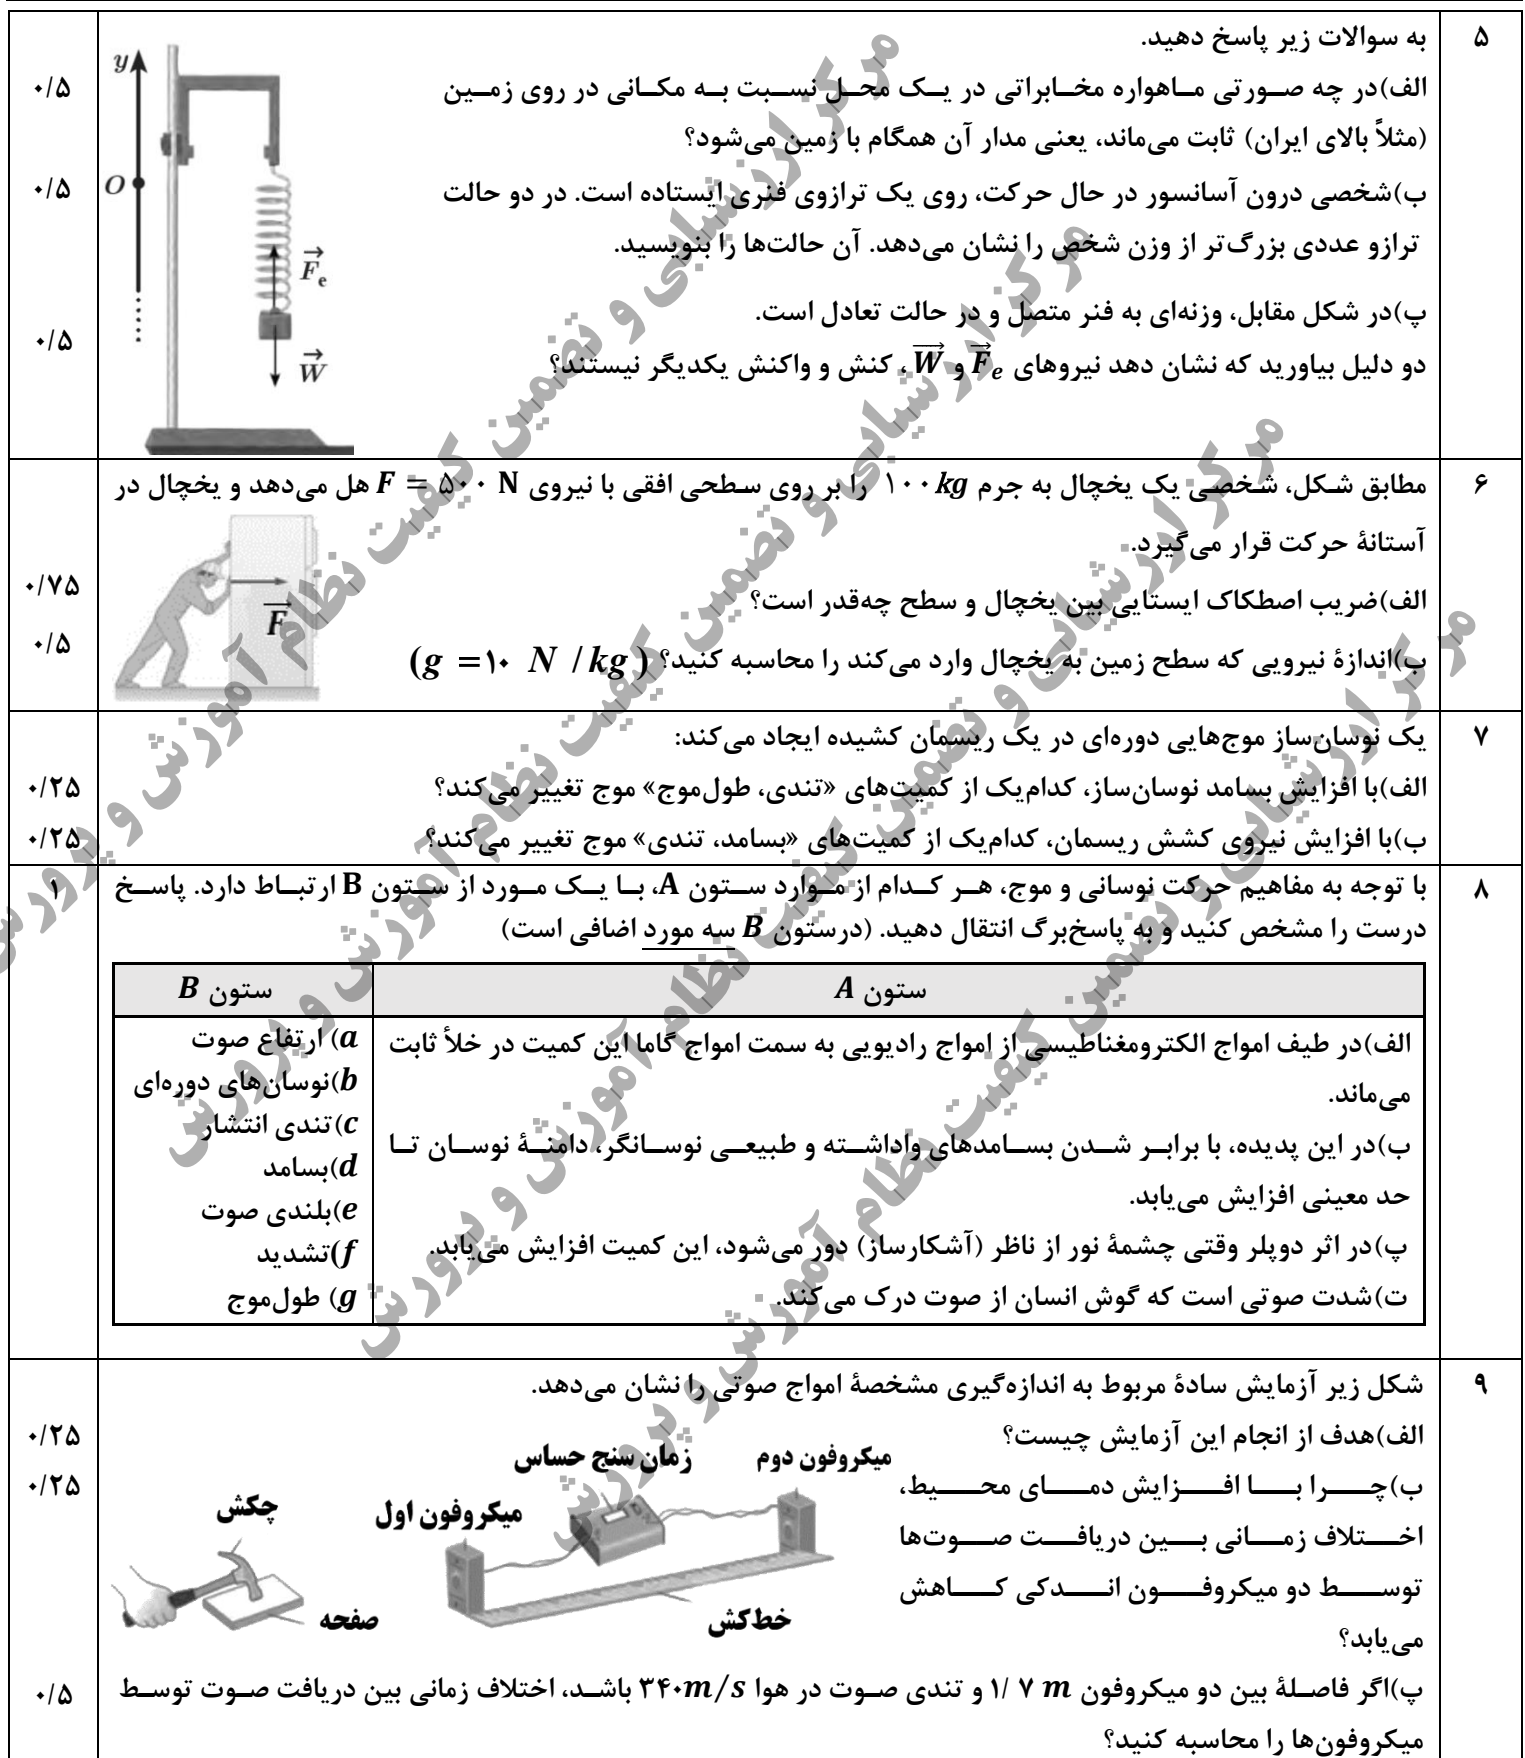 ۵
به سوالات زیر پاسخ دهید.
الف)در چه صورتی ماهواره مخابراتی در یک محل نسبت به مکانی در روی زمین
۰/۵
(مثلاً بالای ایران) ثابت می‌ماند، یعنی مدار آن همگام با زمین می‌شود؟
ب)شخصی درون آسانسور در حال حرکت، روی یک ترازوی فنری ایستاده است. در دو حالت
۰/۵
ترازو عددی بزرگ‌تر از وزن شخص را نشان می‌دهد. آن حالت‌ها را بنویسید.
پ)در شکل مقابل، وزنه‌ای به فنر متصل و در حالت تعادل است.
۰/۵
دو دلیل بیاورید که نشان دهد نیروهای F⃗e و W⃗، کنش و واکنش یکدیگر نیستند؟
y
O
F⃗e
W⃗
۶
مطابق شکل، شخصی یک یخچال به جرم ۱۰۰ kg را بر روی سطحی افقی با نیروی F = ۵۰۰ N هل می‌دهد و یخچال در
آستانهٔ حرکت قرار می‌گیرد.
الف)ضریب اصطکاک ایستایی بین یخچال و سطح چه‌قدر است؟
۰/۷۵
ب)اندازهٔ نیرویی که سطح زمین به یخچال وارد می‌کند را محاسبه کنید؟ (g = ۱۰ N / kg)
۰/۵
F⃗
۷
یک نوسان‌ساز موج‌هایی دوره‌ای در یک ریسمان کشیده ایجاد می‌کند:
الف)با افزایش بسامد نوسان‌ساز، کدام‌یک از کمیت‌های «تندی، طول‌موج» موج تغییر می‌کند؟
۰/۲۵
ب)با افزایش نیروی کشش ریسمان، کدام‌یک از کمیت‌های «بسامد، تندی» موج تغییر می‌کند؟
۰/۲۵
۸
با توجه به مفاهیم حرکت نوسانی و موج، هر کدام از موارد ستون A، با یک مورد از ستون B ارتباط دارد. پاسخ
۱
درست را مشخص کنید و به پاسخ‌برگ انتقال دهید. (درستون B سه مورد اضافی است)
ستون A
ستون B
الف)در طیف امواج الکترومغناطیسی از امواج رادیویی به سمت امواج گاما این کمیت در خلأ ثابت
می‌ماند.
ب)در این پدیده، با برابر شدن بسامدهای واداشته و طبیعی نوسانگر، دامنهٔ نوسان تا
حد معینی افزایش می‌یابد.
پ)در اثر دوپلر وقتی چشمهٔ نور از ناظر (آشکارساز) دور می‌شود، این کمیت افزایش می‌یابد.
ت)شدت صوتی است که گوش انسان از صوت درک می‌کند.
a) ارتفاع صوت
b)نوسان‌های دوره‌ای
c)تندی انتشار
d)بسامد
e)بلندی صوت
f)تشدید
g) طول‌موج
۹
شکل زیر آزمایش سادهٔ مربوط به اندازه‌گیری مشخصهٔ امواج صوتی را نشان می‌دهد.
الف)هدف از انجام این آزمایش چیست؟
۰/۲۵
ب)چرا با افزایش دمای محیط،
۰/۲۵
اختلاف زمانی بین دریافت صوت‌ها
توسط دو میکروفون اندکی کاهش
می‌یابد؟
میکروفون دوم
زمان سنج حساس
میکروفون اول
چکش
خط‌کش
صفحه
پ)اگر فاصلهٔ بین دو میکروفون ۱/۷ m و تندی صوت در هوا ۳۴۰m/s باشد، اختلاف زمانی بین دریافت صوت توسط
۰/۵
میکروفون‌ها را محاسبه کنید؟
مرکز ارزشیابی و تضمین کیفیت نظام آموزش و پرورش
مرکز ارزشیابی و تضمین کیفیت نظام آموزش و پرورش
مرکز ارزشیابی و تضمین کیفیت نظام آموزش و پرورش
مرکز ارزشیابی و تضمین کیفیت نظام آموزش و پرورش